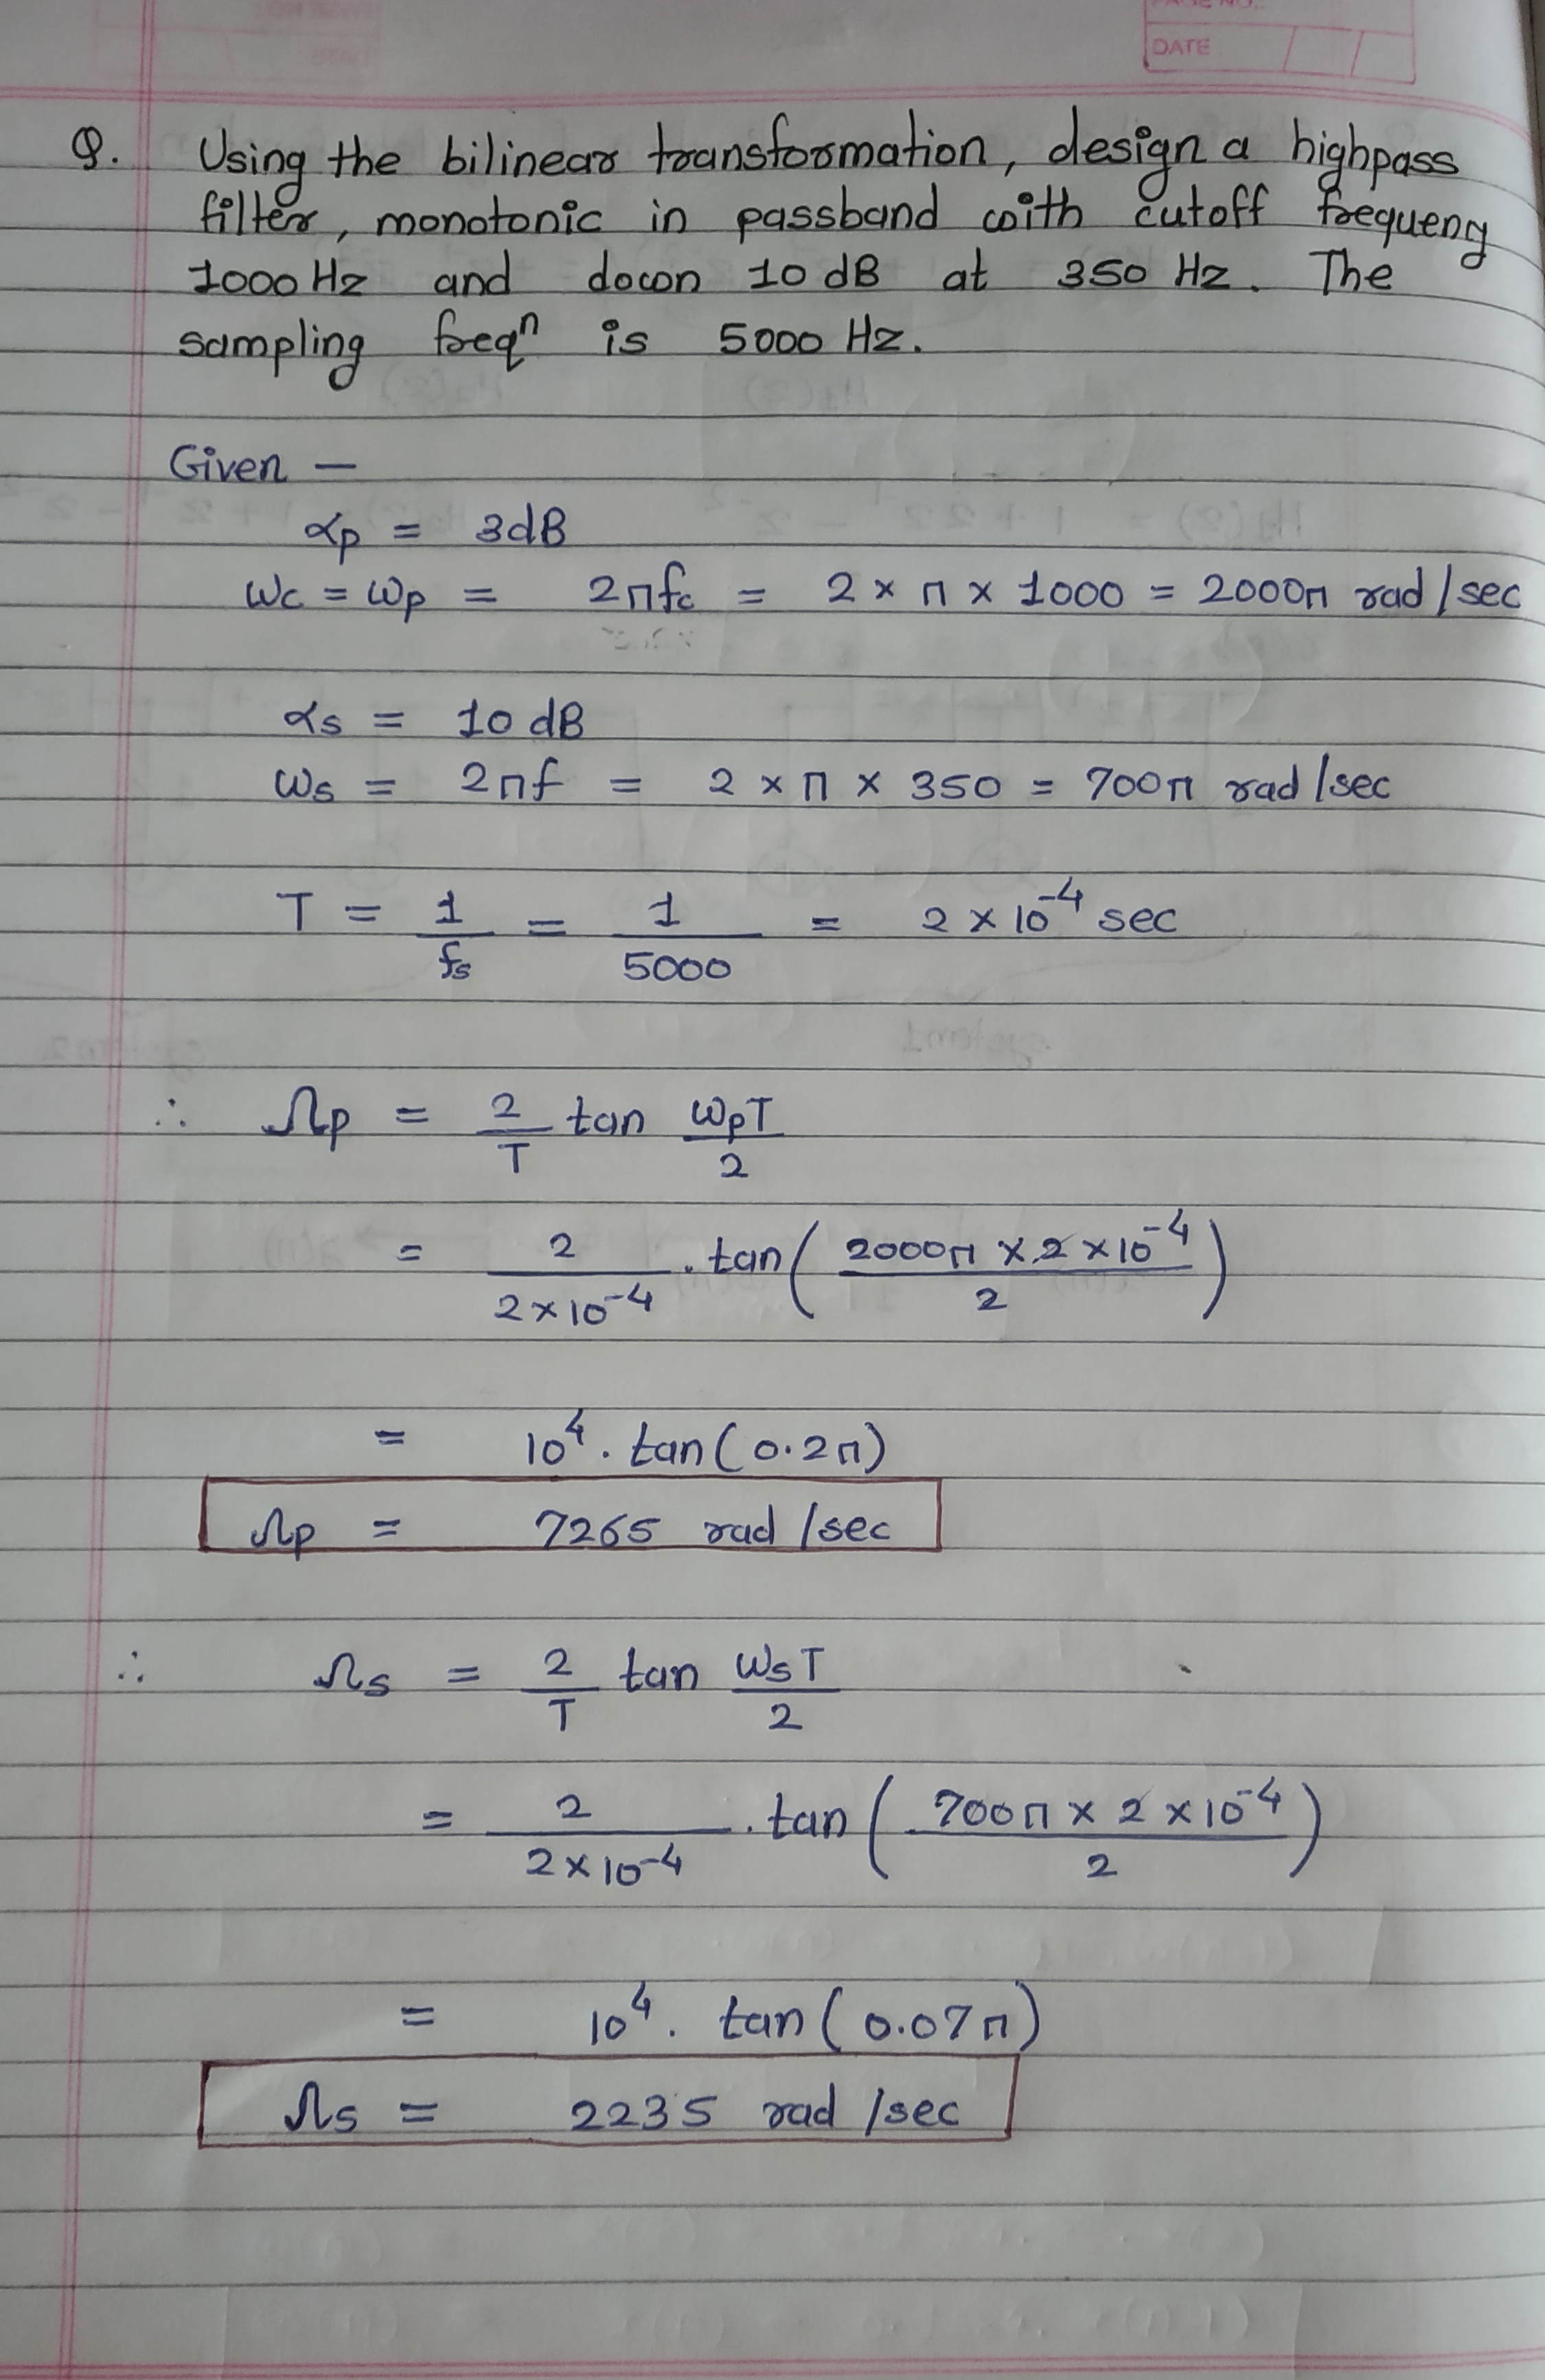 DATE
Q. Using the bilinear transformation, design a highpass
filter, monotonic in passband with cutoff frequeny
1000 Hz and down 10 dB at 350 Hz. The
sampling freqⁿ is 5000 Hz.
Given —
αp = 3dB
ωc = ωp = 2πfc = 2 × π × 1000 = 2000π rad/sec
αs = 10 dB
ωs = 2πf = 2 × π × 350 = 700π rad/sec
T = 1/fs = 1/5000 = 2 × 10⁻⁴ sec
∴ Ωp = 2/T tan ωpT/2
= 2/(2×10⁻⁴) . tan(2000π × 2 × 10⁻⁴/2)
= 10⁴ . tan(0.2π)
Ωp = 7265 rad/sec
∴ Ωs = 2/T tan ωsT/2
= 2/(2×10⁻⁴) . tan(700π × 2 × 10⁻⁴/2)
= 10⁴ . tan(0.07π)
Ωs = 2235 rad/sec